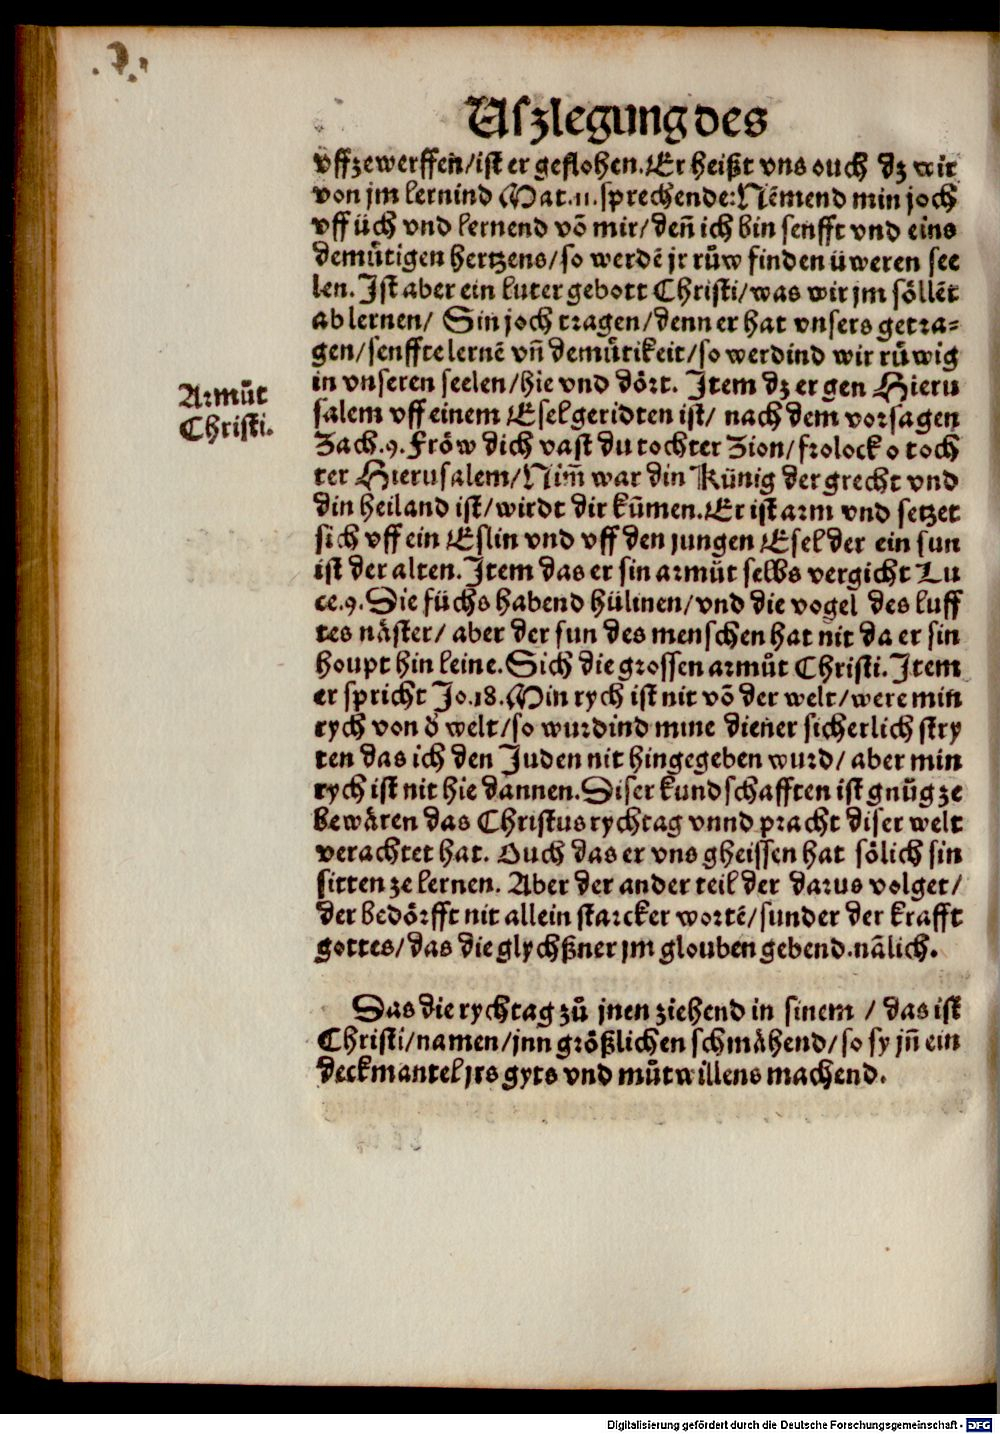 Uszlegung des
vffzewerffen/ist er geflohen. Er heißt vns ouch dz wir
von jm lernind Mat. 11. sprechende: Nemēnd min joch
vff üch vnd lernend võ mir/deñ ich bin senfft vnd eins
demuͤtigen hertzens/so werdē jr ruͤw finden üweren see
len. Ist aber ein luter gebott Christi/was wir jm soͤllēt
ab lernen/ Sin joch tragen/denn er hat vnsers getra-
gen/senffte lernē vñ demuͤtikeit/so werdind wir ruͤwig
Armuͦt
Christi.
in vnseren seelen/hie vnd doͤrt. Item dz er gen Hieru
salem vff einem Esel geridten ist/ nach dem vorsagen
Zach. 9. Froͤw dich vast du tochter Zion/frolock o toch
ter Hierusalem/Nim̄ war din Künig der grecht vnd
din heiland ist/wirdt dir kum̄en. Er ist arm vnd setzet
sich vff ein Eslin vnd vff den jungen Esel der ein sun
ist der alten. Item das er sin armuͦt selbs vergicht Lu
ce. 9. Die füchs habend hülinen/vnd die vogel des luff
tes naͤster/ aber der sun des menschen hat nit da er sin
houpt hin leine. Sich die grossen armuͦt Christi. Item
er spricht Jo. 18. Min rych ist nit võ der welt/were min
rych von d̄ welt/so wurdind mine diener sicherlich stry
ten das ich den Juden nit hingegeben wurd/ aber min
rych ist nit hie dannen. Diser kundschafften ist gnuͦg ze
bewaͤren das Christus rychtag vnnd pracht diser welt
verachtet hat. Ouch das er vns gheissen hat soͤlich sin
sitten ze lernen. Aber der ander teil der darus volget/
der bedoͤrfft nit allein starcker wortē/sunder der krafft
gottes/das die glychßner jm glouben gebend. naͤlich.
Das die rychtag zuͦ jnen ziehend in sinem / das ist
Christi/namen/jnn groͤßlichen schmaͤhend/so sy jñ ein
deckmantel jrs gyts vnd muͦtwillens machend.
Digitalisierung gefördert durch die Deutsche Forschungsgemeinschaft - DFG